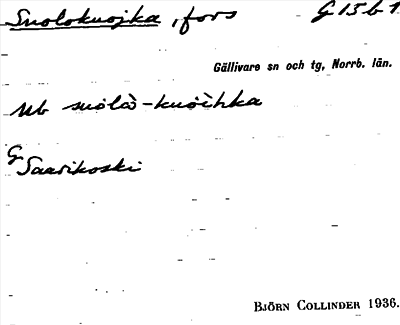 Suolokuojka, fors G 15 b 1
Gällivare sn och tg, Norrb. län.
Ub suolå̀-kuòi̯hka
G
Saarikoski
BJÖRN COLLINDER 1936.